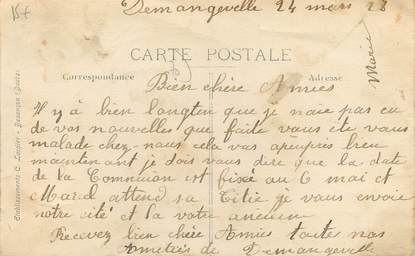 Demangevelle 24 mars 28
CARTE POSTALE
Correspondance
Adresse
Marie
Bien chère Amies
Il y à bien longten que je naie pas eu
de vos nouvelles que faite vous ete vous
malade chez-nous cela vas apeuprès bien
maintenant je dois vous dire que la date
de la Communion est fixé au 6 mai et
Marcel attend sa Titie je vous envoie
notre cité et la votre ancienne
Recevez bien chère Amies toute nos
Amitiés de Demangevelle
Etablissements C. Lardier - Besançon (Doubs)